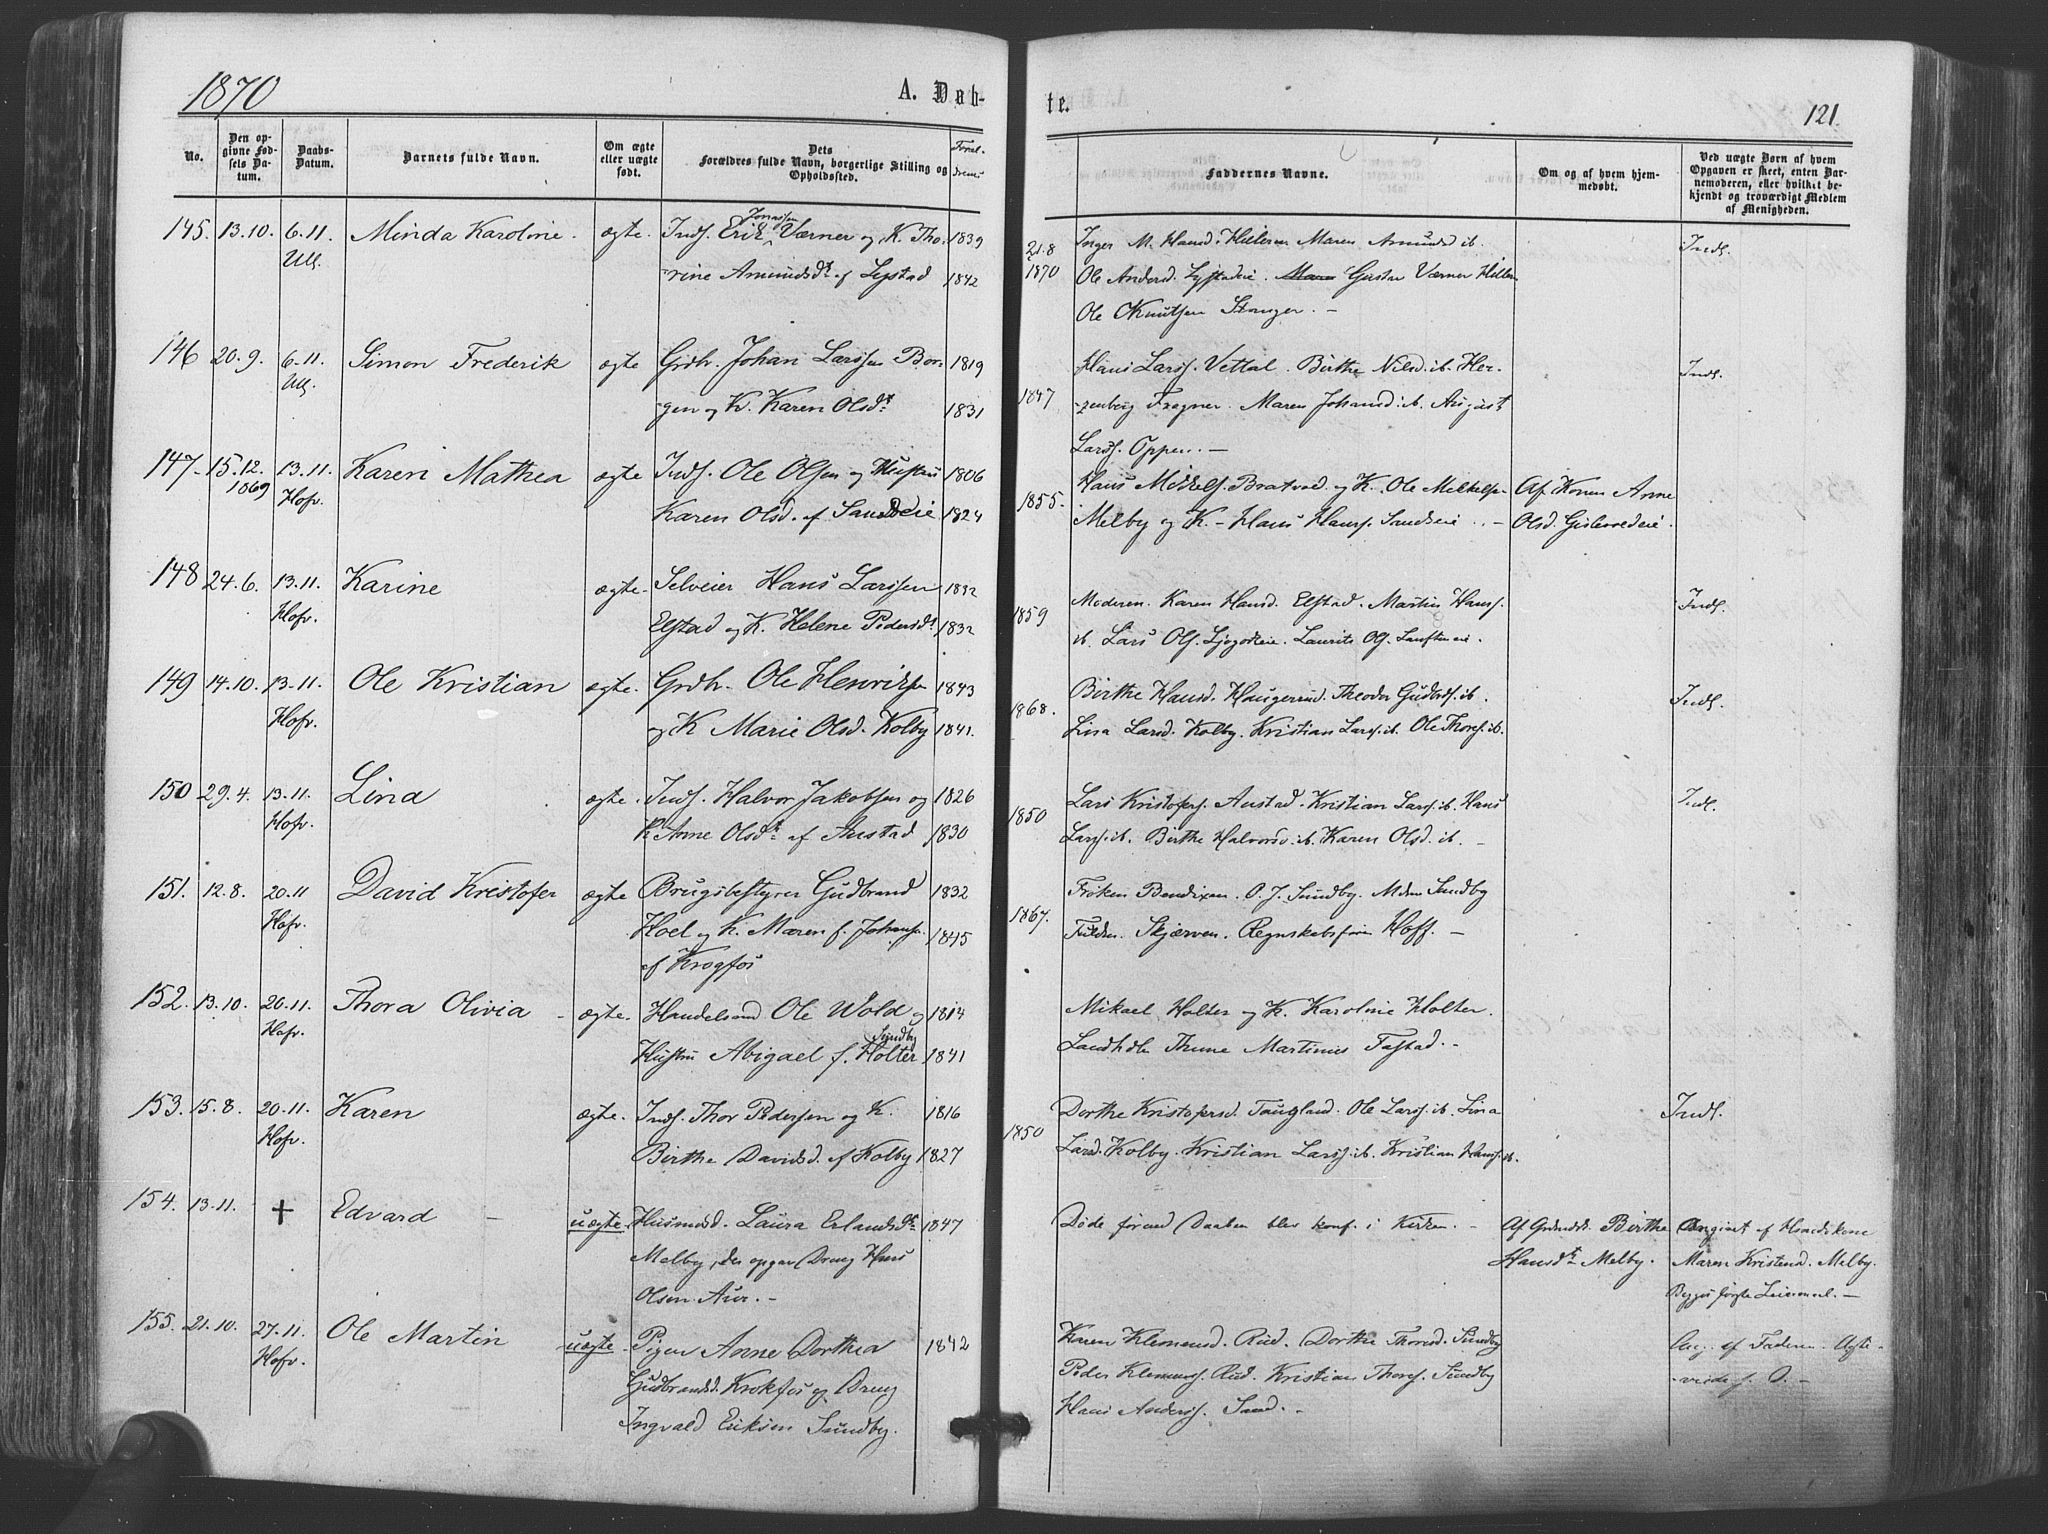 1870
A. Døb-
te.
121.
No.
Den opgivne Fødsels Datum.
Daabs-Datum.
Barnets fulde Navn.
Om ægte eller uægte født.
Dets Forældres fulde Navn, borgerlige Stilling og Opholdssted.
Faddernes Navne.
Om og af hvem hjemmedøbt.
Ved uægte Børn af hvem Opgaven er skeet, enten Barnemoderen, eller hvilket bekjendt og troværdigt Medlem af Menigheden.
145. 13.10. 6.11. Minda Karoline. ægte. Inds. Erik Jonassen Værner og K. Tho- 1839
Ull. rine Amundsdt af Lystad 1842
21.8 1870
Inger M. Hansd. Hilleren Maren Amundsd ib.
Ole Andersd. Lystadeie. Gustav Værner Hilleren
Ole Knutsen Stanger. –
Indl.
146 20.9. 6.11. Simon Frederik ægte Grdbr. Johan Larssen Bor- 1819
Ull. gen og K. Karen Olsdt 1831
1847
Hans Larss. Vettal. Birthe Nilsd. ib. Her-
zenberg Fragner. Maren Johansd. ib. August
Larss. Oppen. –
Indl.
147. 15.12. 1869 13.11. Karen Mathea ægte Inds. Ole Olsen og Hustru 1806
Hofv. Karen Olsd. af Sandeie 1824
1855.
Hans Mikkels. Bratvod og K. Ole Mikkelss.
Melby og K. – Hans Hanss. Sandseie. –
Af Konen Anne
Olsd. Gislevoldeie.
148 24.6. 13.11. Karine ægte. Selveier Hans Larssen 1832
Hofv. Elstad og K. Helene Pedersdt 1832
1859
Moderen. Karen Hansd. Elstad. Martin Hanss.
ib. Lars Ols. Ljøgodteie. Laurits Ols. Tufteneie.
Indl.
149 14.10. 13.11. Ole Kristian ægte. Grdbr. Ole Henriksen 1843
Hofv. og K Marie Olsd. Kolby 1841.
1868.
Birthe Hansd. Haugerrud. Theodor Gudbrds. ib.
Lina Larsd. Kolby. Kristian Larss. ib. Ole Thors. ib.
Indl.
150 29.4. 13.11. Lina ægte. Inds. Halvor Jakobsen og 1826
Hofv. K. Anne Olsdt af Austad 1830
1850
Lars Kristofers. Austad. Kristian Larss. ib. Hans
Larss. ib. Birthe Halvorsd. ib. Karen Olsd. ib. –
Indl.
151. 12.8. 20.11 David Kristofer ægte Brugsbestyrer Gudbrand 1832
Hofv. Hoel og K. Maren f. Johansen 1845
af Krogfos
1867.
Frøken Bendixen. O. J. Sundby. Mdm Sundby
Skjærven. Regnskabsfører Hoff. –
152. 13.10. 20.11. Thora Olivia – ægte. Handelsmd Ole Wold og 1814
Hofv. Hustru Abigael f. Holter Sundby 1841
Mikael Holter og K. Karoline Holter.
Landhdlr Thune Martinius Fastad. –
153. 15.8. 20.11. Karen ægte. Inds. Thor Pedersen og K. 1816
Hofv. Birthe Davidsd. af Kolby 1827
1850
Dorthe Kristofersd. Taugland. Ole Larss. ib. Lina
Larsd. Kolby. Kristian Larss. ib. Kristian Hanss. ib.
Indl.
154. 13.11. † Edvard – uægte Husmdsd. Laura Erlandsdt 1847
Melby, der opgav Dreng Hans
Olsen Aur. –
Døde førend Daaben blev konf. i Kirken. –
Af Grdmdsk. Birthe
Hansdt Melby.
Angivet af Husmdskone
Maren Kristensd. Melby.
Begges første Leiermaal. –
155. 21.10. 27.11. Ole Martin uægte. Pigen Anne Dorthea 1842
Hofv. Gudbrandsd. Krokfos og Dreng
Ingvald Eriksen Sundby.
Karen Klemensd. Rud. Dorthe Thorsd. Sundby
Peder Klemenss. Rud. Kristian Thors. Sundby
Hans Anderss. Sand. –
Ang. af Faderen. Ægte-
viede f. D. –